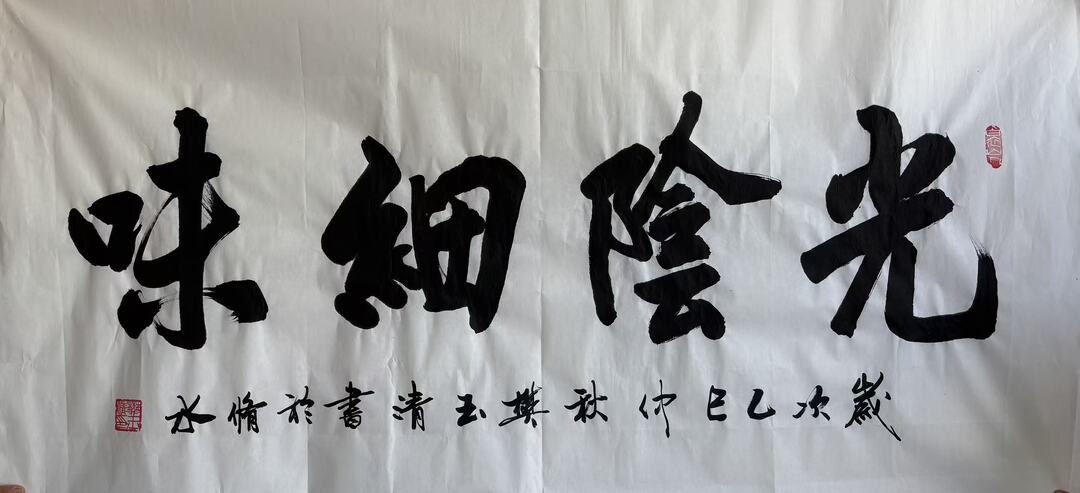 光陰細味
歲次乙巳仲秋樊玉清書於脩水